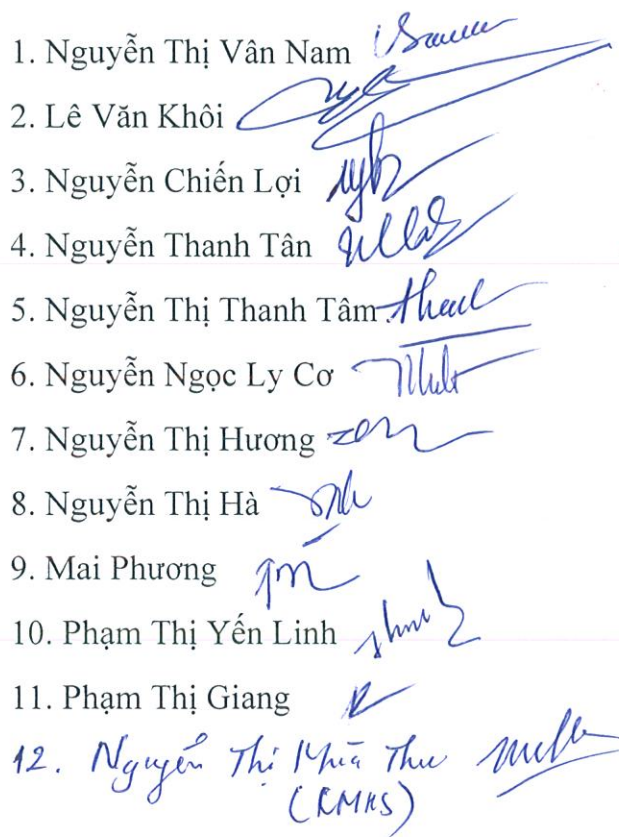 1. Nguyễn Thị Vân Nam
2. Lê Văn Khôi
3. Nguyễn Chiến Lợi
4. Nguyễn Thanh Tân
5. Nguyễn Thị Thanh Tâm
6. Nguyễn Ngọc Ly Cơ
7. Nguyễn Thị Hương
8. Nguyễn Thị Hà
9. Mai Phương
10. Phạm Thị Yến Linh
11. Phạm Thị Giang
12. Nguyễn Thị Thu